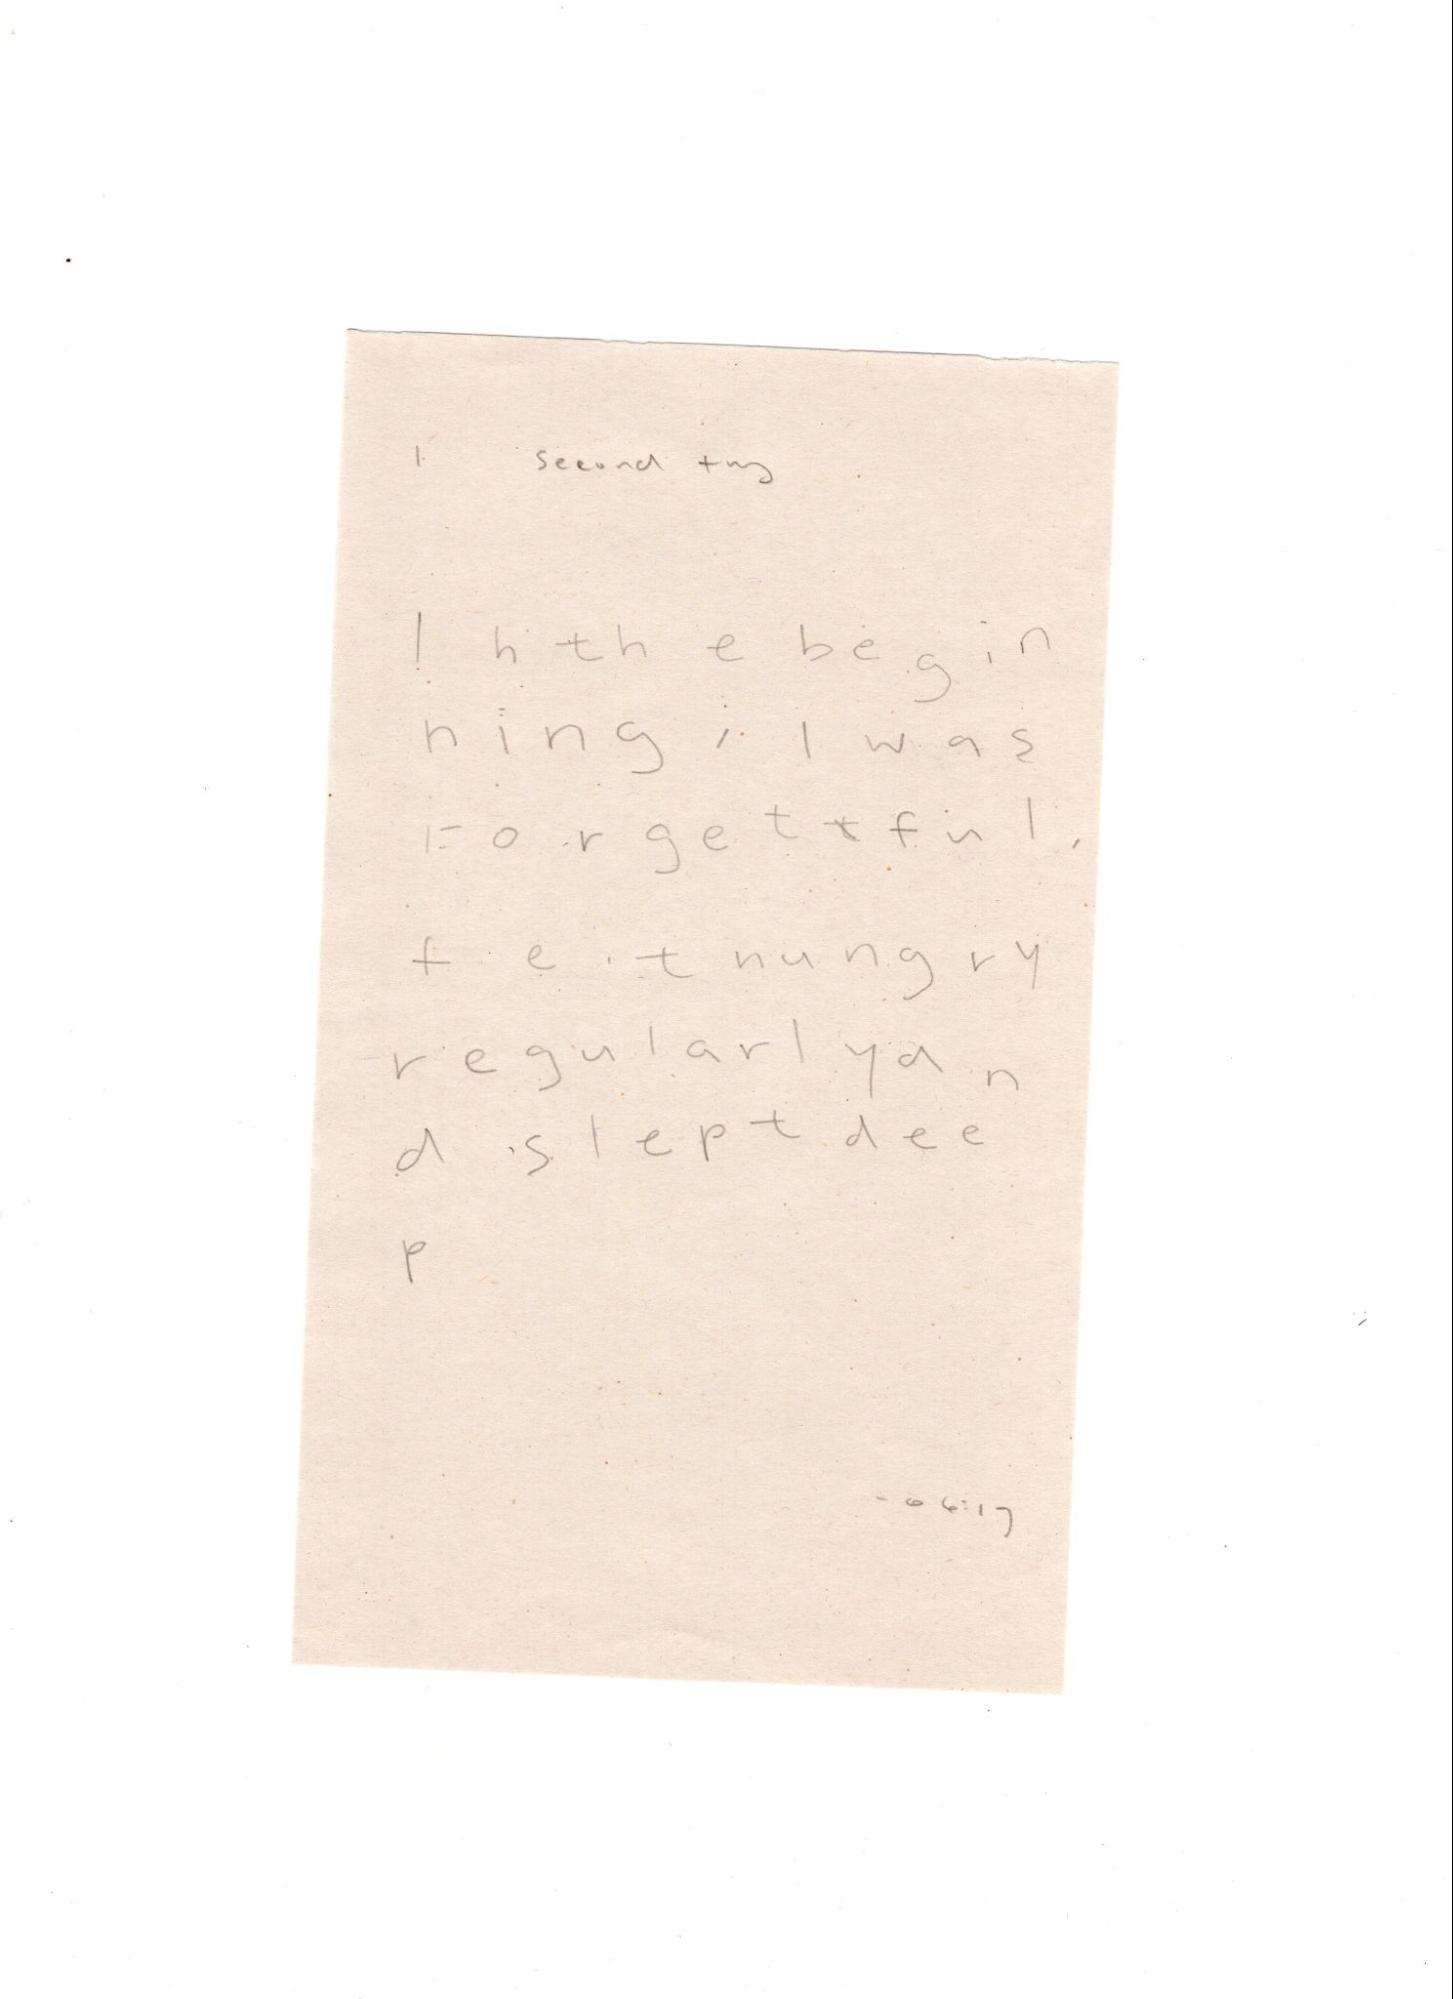 1 second try
I n t h e b e g i n
n i n g , I w a s
F o r g e t t f u l ,
f e l t h u n g r y
r e g u l a r l y a n
d s l e p t d e e
p
- 06:17